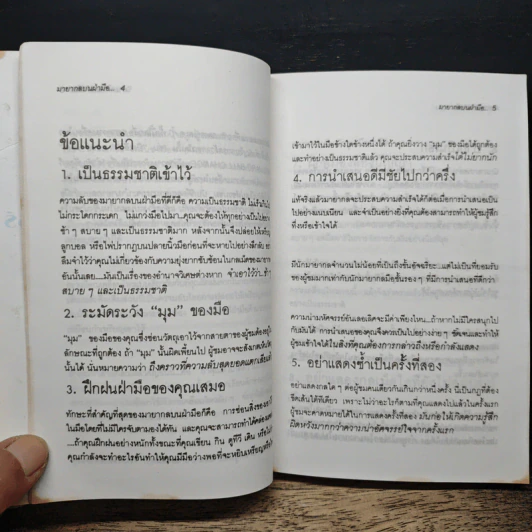 มายากลบนฝ่ามือ... 4
ข้อแนะนำ
1. เป็นธรรมชาติเข้าไว้
ความลับของมายากลบนฝ่ามือที่ดีก็คือ ความเป็นธรรมชาติ ไม่เร็วเกินไป
ไม่กระโตกกระตาก ไม่แกว่งมือไปมา...คุณจะต้องให้ทุกอย่างเป็นไปอย่าง
ช้า ๆ สบาย ๆ และเป็นธรรมชาติมาก หลังจากนั้นจึงปล่อยให้เหรียญ
ลูกบอล หรือไพ่ปรากฏบนปลายนิ้วมือก่อนที่จะหายไปอย่างลึกลับ อย่า
ลืมจำไว้ว่าคุณไม่เกี่ยวข้องกับความยุ่งยากซับซ้อนในกลเม็ดของมายากล
อันนั้นเลย....มันเป็นเรื่องของอำนาจวิเศษต่างหาก จำเอาไว้ว่า..ช้า ๆ
สบาย ๆ และเป็นธรรมชาติ
2. ระมัดระวัง “มุม” ของมือ
“มุม” ของมือของคุณซึ่งซ่อนวัตถุเอาไว้จากสายตาของผู้ชมต้องอยู่ใน
ลักษณะที่ถูกต้อง ถ้า “มุม” นั้นผิดเพี้ยนไป ผู้ชมอาจจะสังเกตเห็นวัตถุ
นั้นได้ นั่นหมายความว่า ถึงคราวที่ความลับสุดยอดแตกเสียแล้ว
3. ฝึกฝนฝ่ามือของคุณเสมอ
ทักษะที่สำคัญที่สุดของมายากลบนฝ่ามือก็คือ การซ่อนสิ่งของเอาไว้
ในมือโดยที่ไม่มีใครจับตามองได้ทัน และคุณจะสามารถทำได้คล่องแคล่ว
...ถ้าคุณฝึกฝนอย่างหนักขณะที่คุณเขียน กิน ดูทีวี เดิน หรือไม่ว่า
คุณกำลังจะทำอะไรอันทำให้คุณมีมือว่างพอที่จะหยิบเหรียญหรือ
มายากลบนฝ่ามือ... 5
เข้ามาไว้ในมือข้างใดข้างหนึ่งได้ ถ้าคุณยิ่งวาง “มุม” ของมือได้ถูกต้อง
และทำอย่างเป็นธรรมชาติแล้ว คุณจะประสบความสำเร็จได้ไม่ยากนัก
4. การนำเสนอดีมีชัยไปกว่าครึ่ง
แท้จริงแล้วมายากลจะประสบความสำเร็จได้ก็ต่อเมื่อการนำเสนอเป็น
ไปอย่างแนบเนียน และจำเป็นอย่างยิ่งที่คุณต้องสามารถทำให้ผู้ชมรู้สึก
ทึ่งหรือเข้าใจได้
มีนักมายากลจำนวนไม่น้อยที่เป็นถึงชั้นอัจฉริยะ...แต่ไม่เป็นที่ยอมรับ
ของผู้ชมมากเท่ากับนักมายากลมือชั้นรอง ๆ ที่มีการนำเสนอที่ดีกว่า
ความน่ามหัศจรรย์อันเลอเลิศจะมีค่าเพียงไหน...ถ้าหากไม่มีใครสนุกไป
กับมันได้ การนำเสนอของคุณจึงควรเป็นไปอย่างง่ายๆ ชัดเจนและทำให้
ผู้ชมเข้าใจได้ในสิ่งที่คุณต้องการกล่าวถึงหรือกำลังแสดง
5. อย่าแสดงซ้ำเป็นครั้งที่สอง
อย่าแสดงกลใด ๆ ต่อผู้ชมคนเดียวกันเกินกว่าหนึ่งครั้ง นี่เป็นกฎที่ต้อง
ขีดเส้นใต้ทีเดียว เพราะไม่ว่าอะไรก็ตามที่คุณแสดงไปแล้วในครั้งแรก
ผู้ชมจะคาดหมายได้ในการแสดงครั้งที่สอง มันก่อให้เกิดความรู้สึก
ผิดหวังมากกว่าความน่าอัศจรรย์ใจจากครั้งแรก